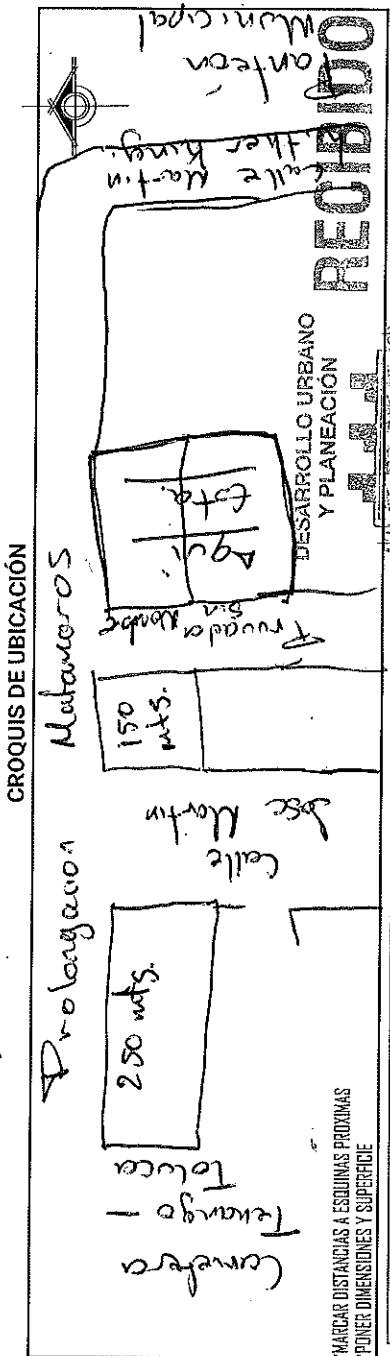 CROQUIS DE UBICACIÓN
Prolongacion Matamoros
Carretera
Tenango -
Toluca
250 mts.
Calle
Jose Martin
150
mts.
Privada
sin
Nombre
Aqui
Esta.
Calle Martin
Luther King.
Panteón
Municipal
DESARROLLO URBANO
Y PLANEACIÓN
RECIBIDO
*MARCAR DISTANCIAS A ESQUINAS PROXIMAS
*PONER DIMENSIONES Y SUPERFICIE